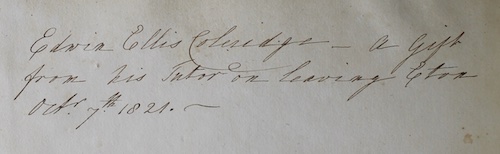 Edwin Ellis Coleridge - A Gift
from his Tutor on leaving Eton
Octr. 7th 1821. -